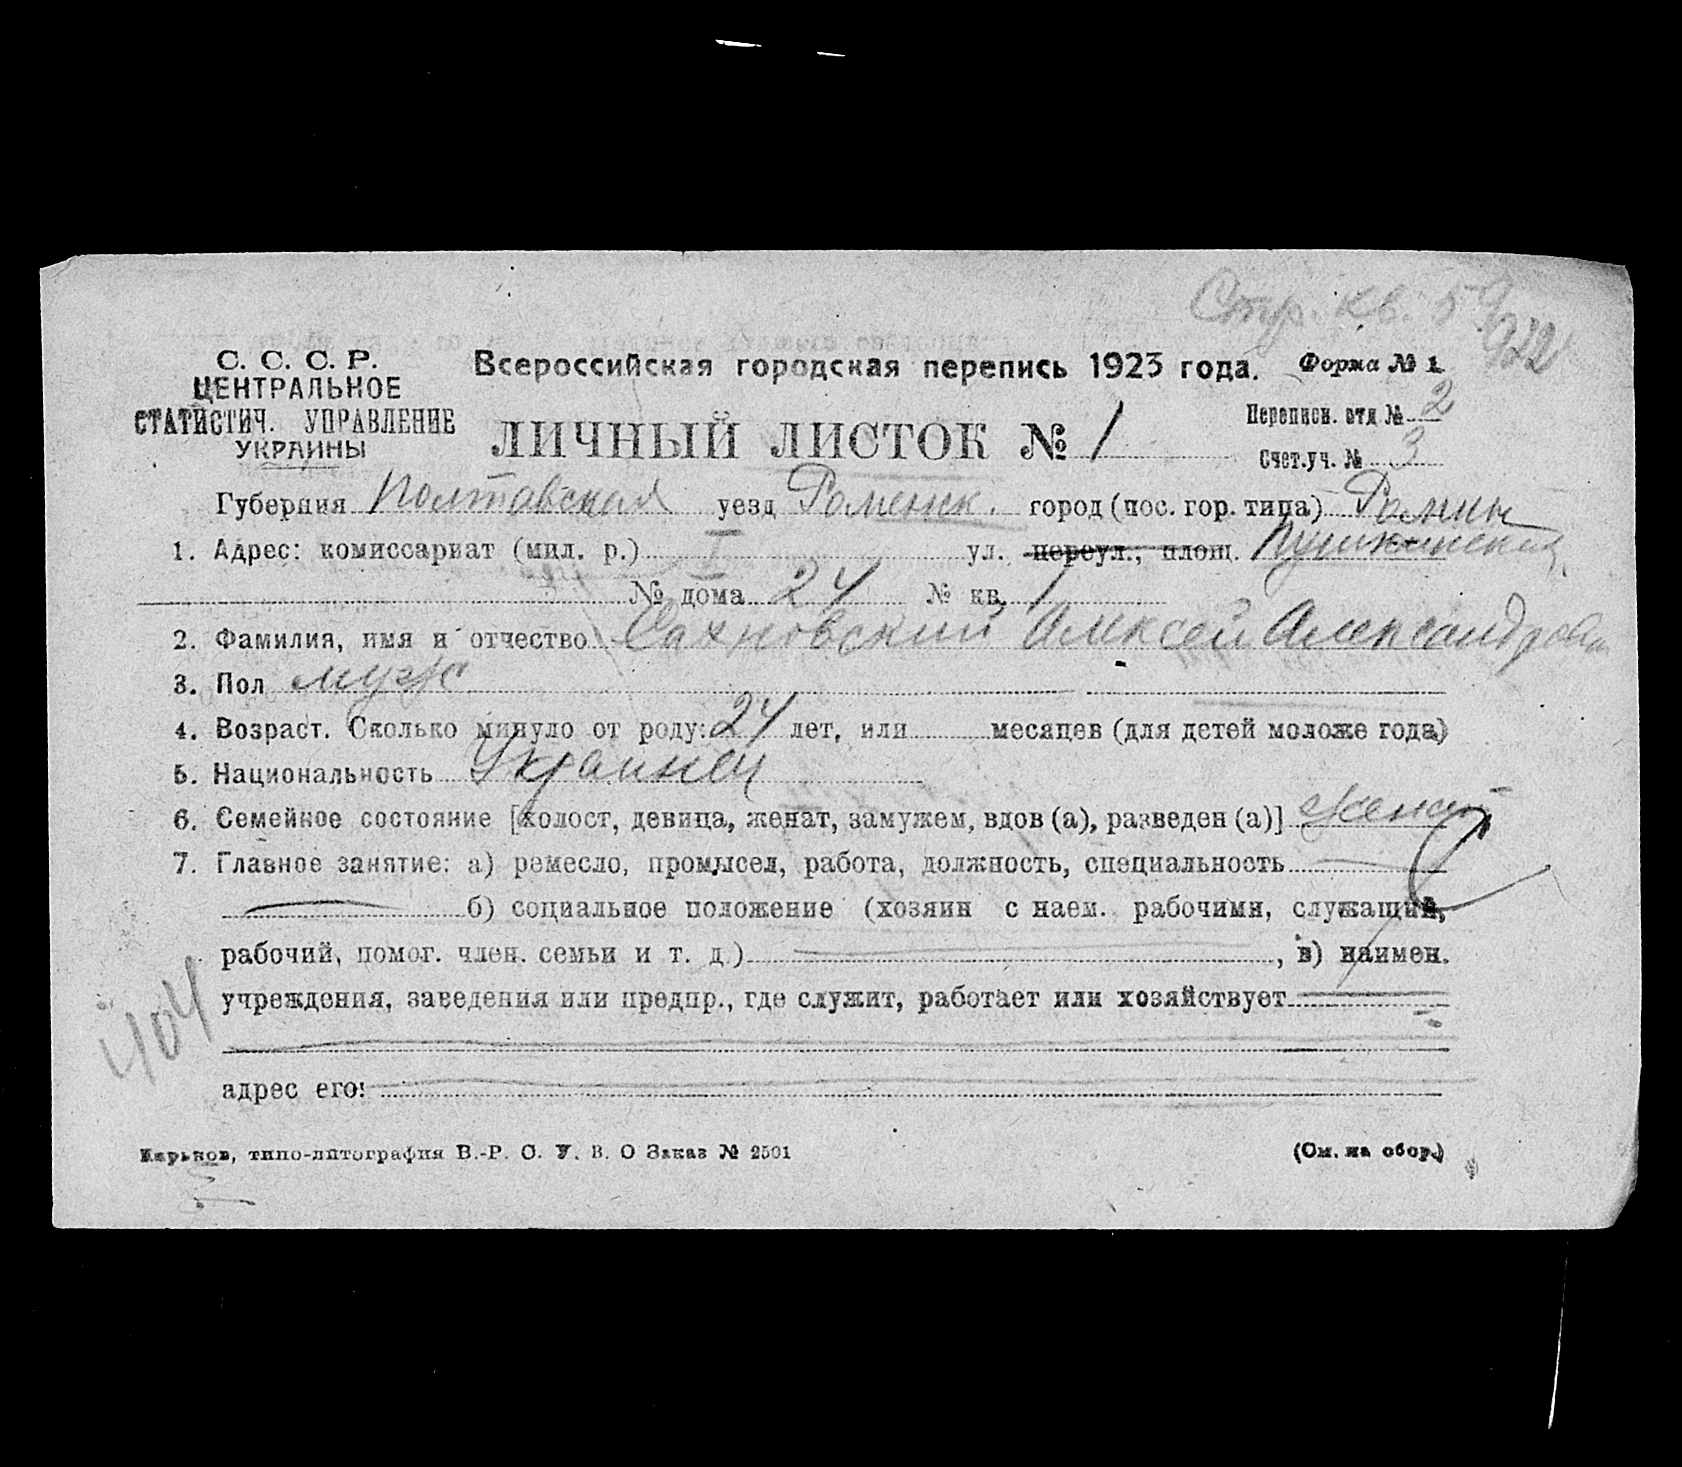 Стр. кв. 59
922
С. С. С. Р.
ЦЕНТРАЛЬНОЕ
СТАТИСТИЧ. УПРАВЛЕНИЕ
УКРАИНЫ
Всероссийская городская перепись 1923 года. Форма № 1.
ЛИЧНЫЙ ЛИСТОК № 1
Переписн. отд № 2
Счет.уч. № 3
Губерния Полтавская уезд Роменск. город (пос. гор. типа) Ромны
1. Адрес: комиссариат (мил. р.) I ул. переул., площ. Пушкинская
№ дома 24 № кв. 1
2. Фамилия, имя и отчество Сахновский Алексей Александрович
3. Пол муж
4. Возраст. Сколько минуло от роду: 24 лет, или месяцев (для детей моложе года)
5. Национальность Украинец
6. Семейное состояние [холост, девица, женат, замужем, вдов (а), разведен (а)] женат
7. Главное занятие: а) ремесло, промысел, работа, должность, специальность
б) социальное положение (хозяин с наем. рабочими, служащий,
рабочий, помог. член. семьи и т. д.) , в) наимен.
учреждения, заведения или предпр., где служит, работает или хозяйствует
404
адрес его:
Харьков, типо-литография В.-Р. С. У. В. О Заказ № 2501
(См. на обор.)